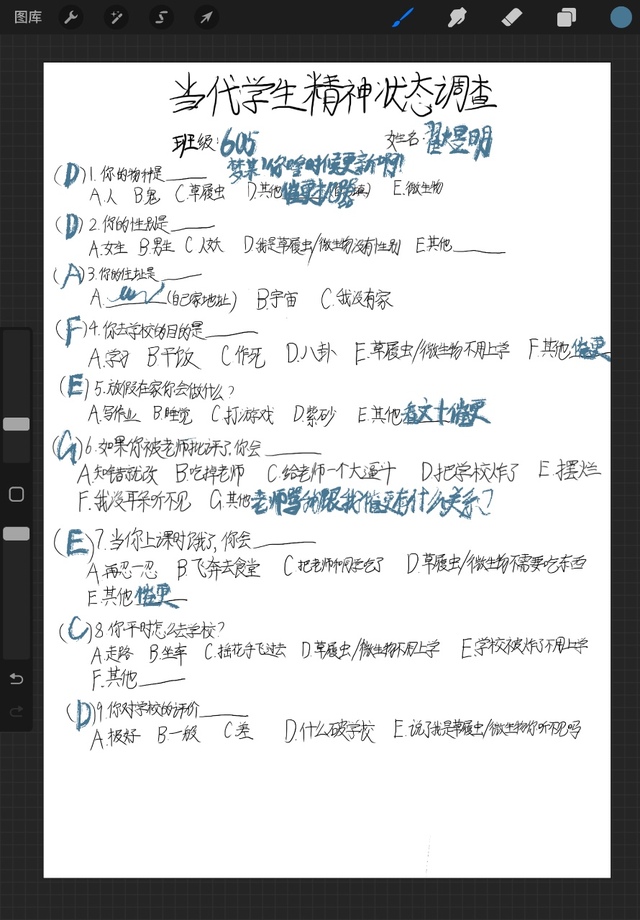 图库
当代学生精神状态调查
班级:605 姓名:翟煜明
梦某!你啥时候更新啊!
(D)1.你的物种是____
A.人 B.鬼 C.草履虫 D.其他催更 E.微生物
(D)2.你的性别是____
A.女生 B.男生 C.人妖 D.我是草履虫/微生物没有性别 E.其他____
(A)3.你的住址是____
A.____(自己家地址) B.宇宙 C.我没有家
(F)4.你去学校的目的是____
A.学习 B.干饭 C.作死 D.八卦 E.草履虫/微生物不用上学 F.其他催更
(E)5.放假在家你会做什么?
A.写作业 B.睡觉 C.打游戏 D.熬砂 E.其他看文+催更
(G)6.如果你被老师批评了,你会____
A.知错就改 B.吃掉老师 C.给老师一个大逼斗 D.把学校炸了 E.摆烂
F.我没耳朵听不见 G.其他老师骂我跟我催更有什么关系?
(E)7.当你上课时饿了,你会____
A.再忍一忍 B.飞奔去食堂 C.把老师和同学吃了 D.草履虫/微生物不需要吃东西
E.其他催更
(C)8.你平时怎么去学校?
A.走路 B.坐车 C.摇花手飞过去 D.草履虫/微生物不用上学 E.学校被炸了不用上学
F.其他____
(D)9.你对学校的评价____
A.极好 B.一般 C.差 D.什么破学校 E.说了我是草履虫/微生物你听不见吗